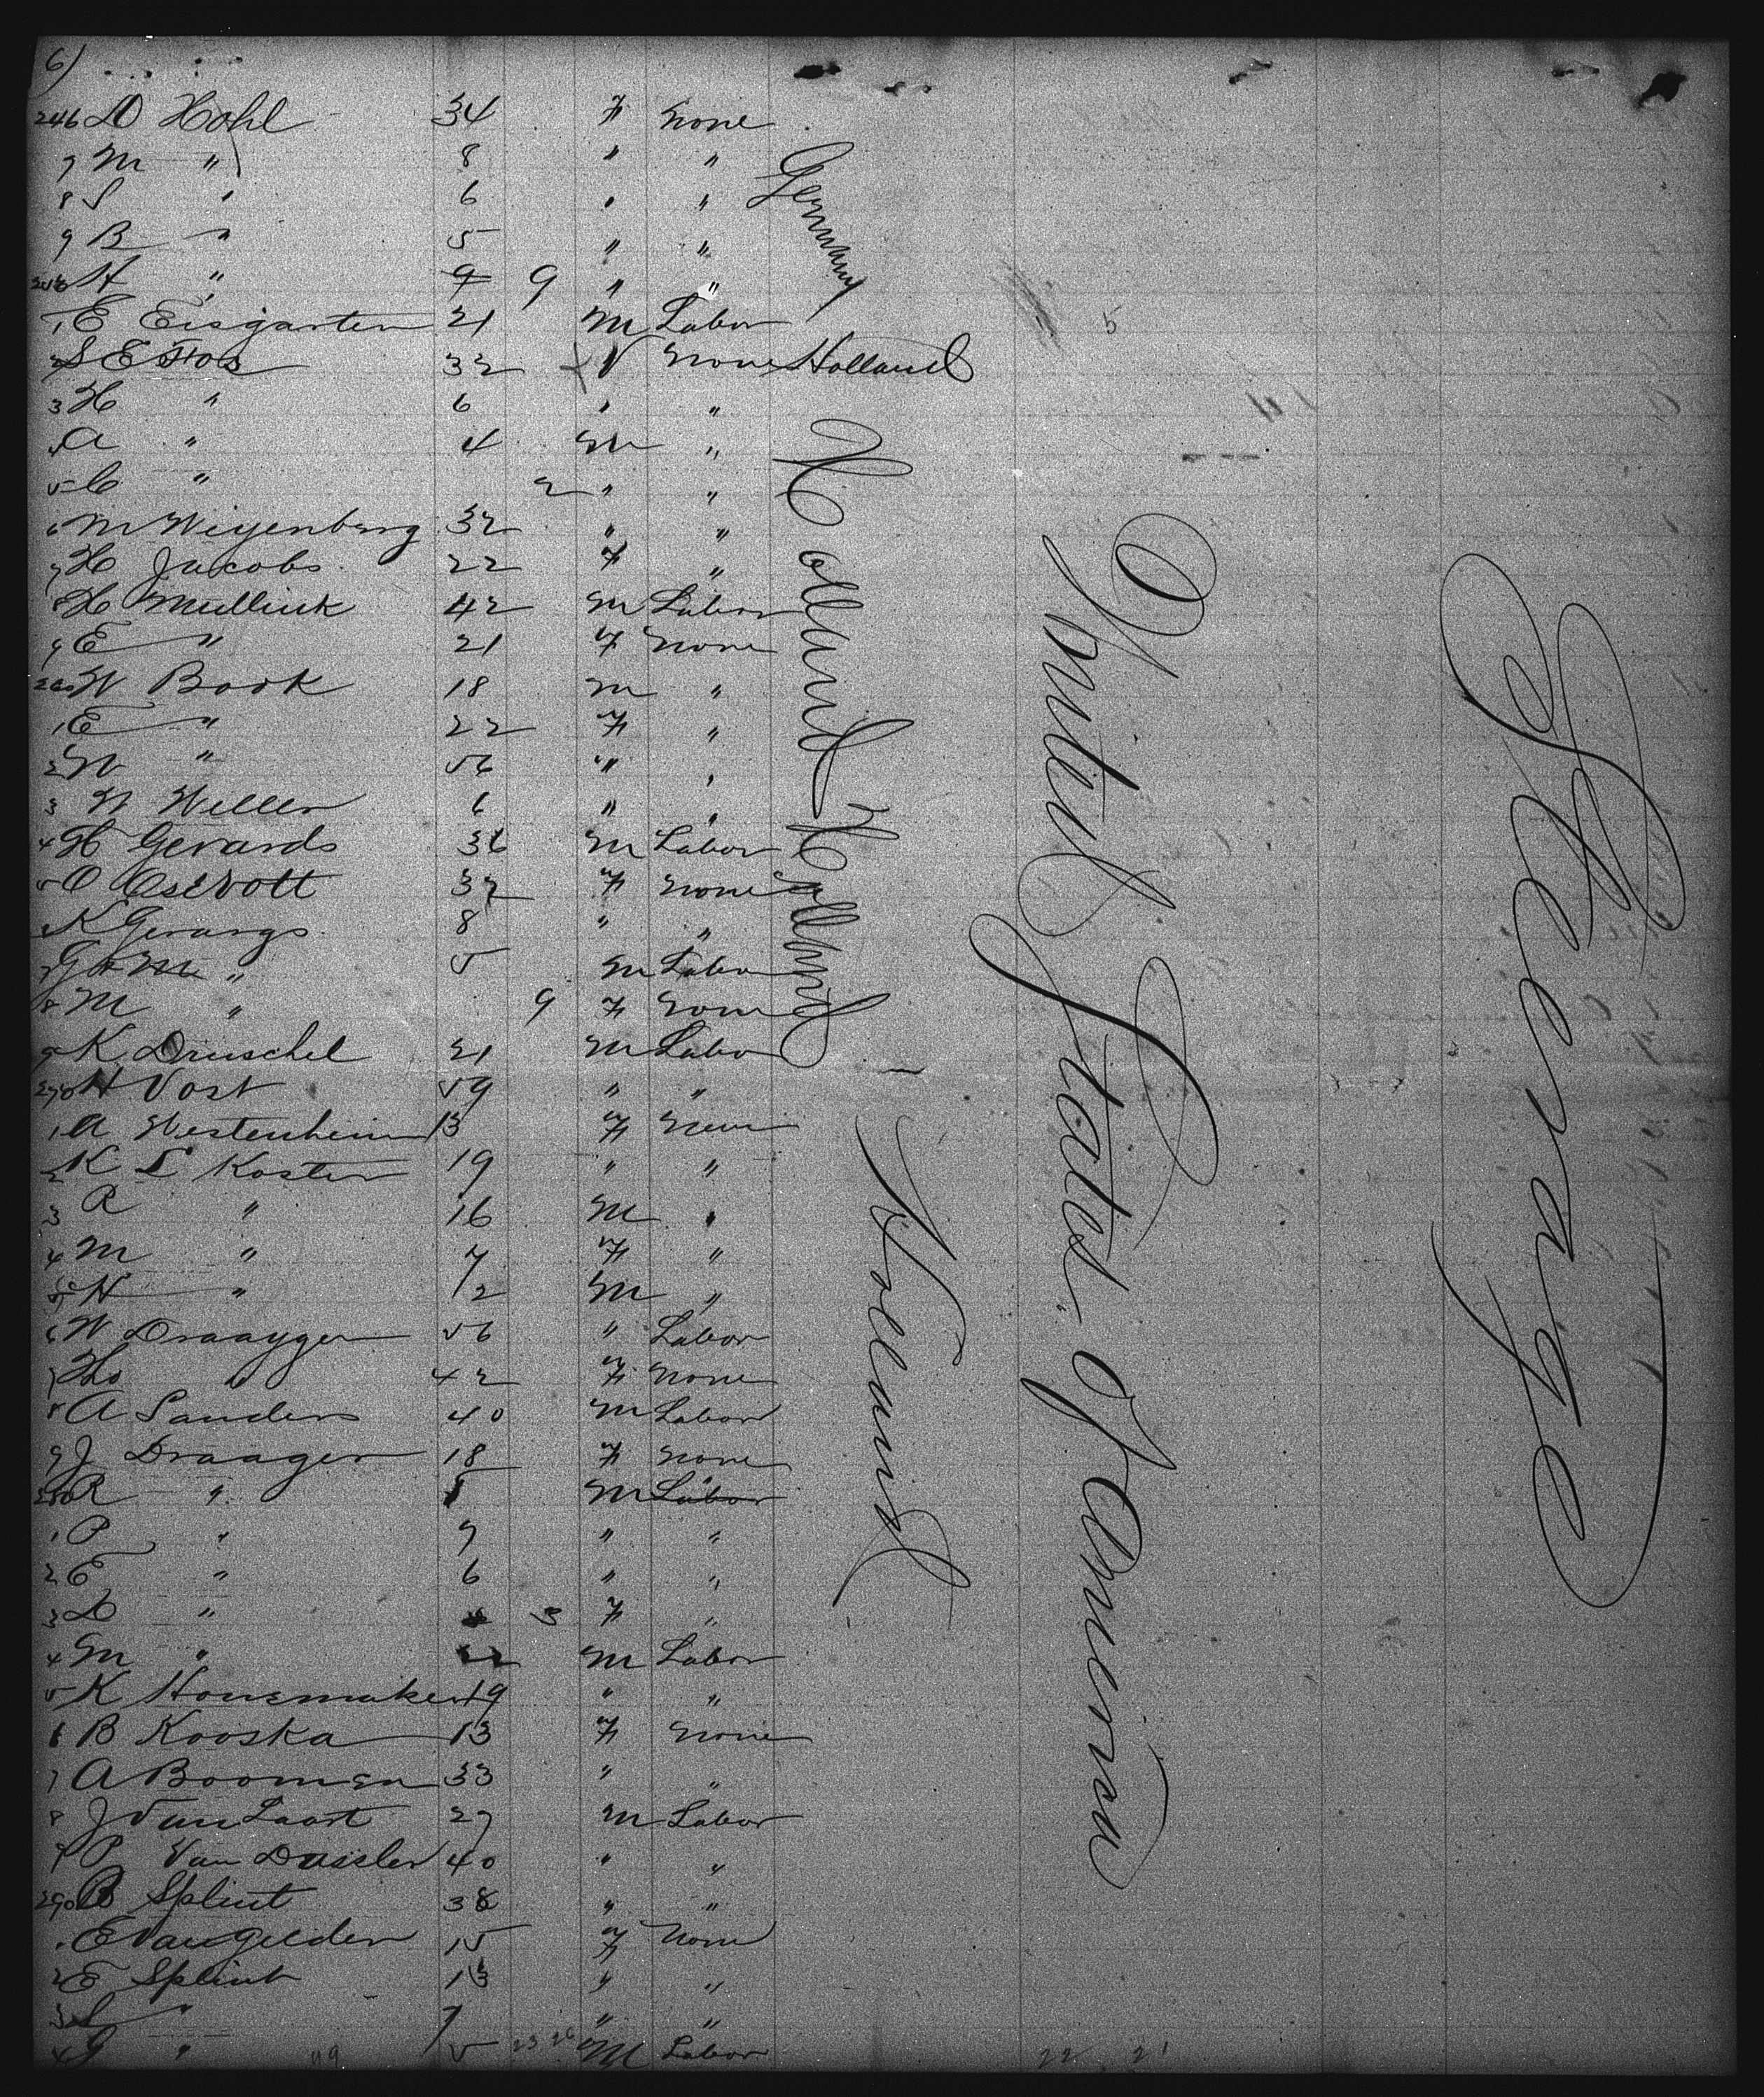 6)
246 D Hohl 34 F None
7 M " 8 " "
8 S " 6 " "
9 B " 5 " "
250 H " 9 9 " "
Germany
1 E Eisgarten 21 M Labor
2 S E Hos 32 None Holland
3 H " 6 " "
4 A " 4 M "
5 C " 2 " "
6 M Weyenberg 32 " "
7 H Jacobs 22 F "
8 H Mullink 42 M Labor
9 E " 21 F None
260 W Book 18 M "
1 E " 22 F "
2 W " 56 " "
3 W Willer 6 " "
4 H Gerards 36 M Labor
5 O 32 F None
6 K Gerargs 8 " "
7 G M " 5 M Labor
8 M " 9 F None
9 K Druschel 21 M Labo
270 H Vost 59 " "
1 A Westenheim 13 F None
2 K L Koster 19 " "
3 R " 16 M "
4 M " 7 F "
5 H " 1/2 M "
6 W Draayger 56 " Labor
7 Ho " 42 F None
8 A Sanders 40 M Labor
9 J Draager 18 F None
280 R " M Labor
1 P " 9 " "
2 E " 6 " "
3 D " 3 F "
4 M " M Labor
5 K Honsmaker 19 " "
6 B Kooska 13 F None
7 A Boomsen 33 " "
8 J Van Laart 27 M Labor
9 P Van Dassler 40 " "
290 B Splint 38 " "
1 E Van Gelder 15 F None
2 E Splint 13 " "
3 S " 7 " "
4 G " 5 M Labor
99 23 26 22 21
Holland
Holland
Holland
United States of America
Steerage
5